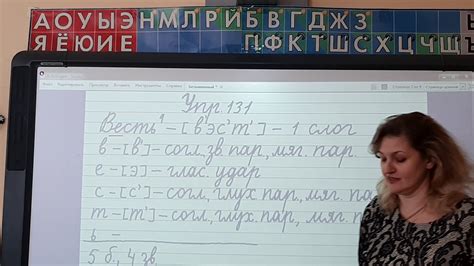 А О У Ы Э Н М Л Р Й Б В Г Д Ж З
Я Ё Ю И Е П Ф К Т Ш С Х Ц Ч Щ
Упр. 131
Весть¹ – [в'эс'т'] – 1 слог
в – [в'] – согл. зв. пар., мяг. пар.
е – [э] – глас. удар
с – [с'] – согл., глух. пар., мяг. па
т – [т'] – согл., глух. пар., мяг. па
ь –
5 б., 4 зв.